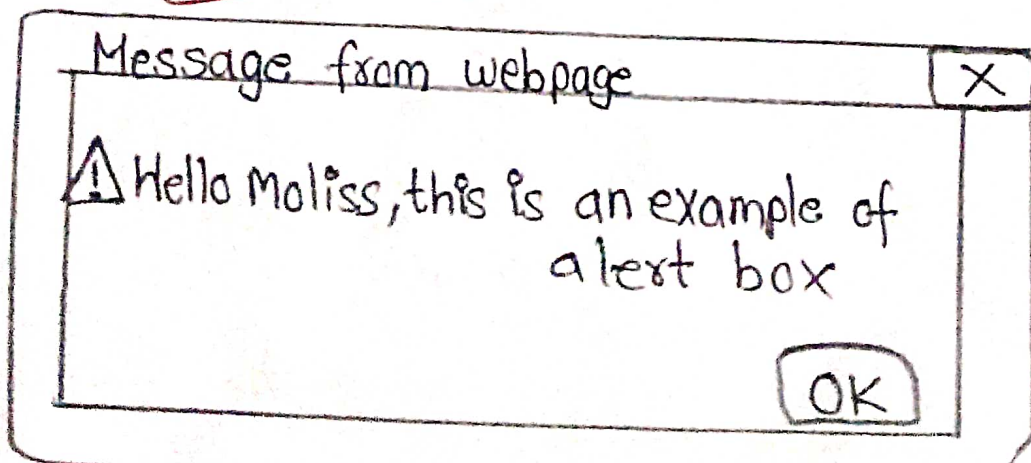 Message from webpage
X
Hello Moliss, this is an example of
alert box
OK